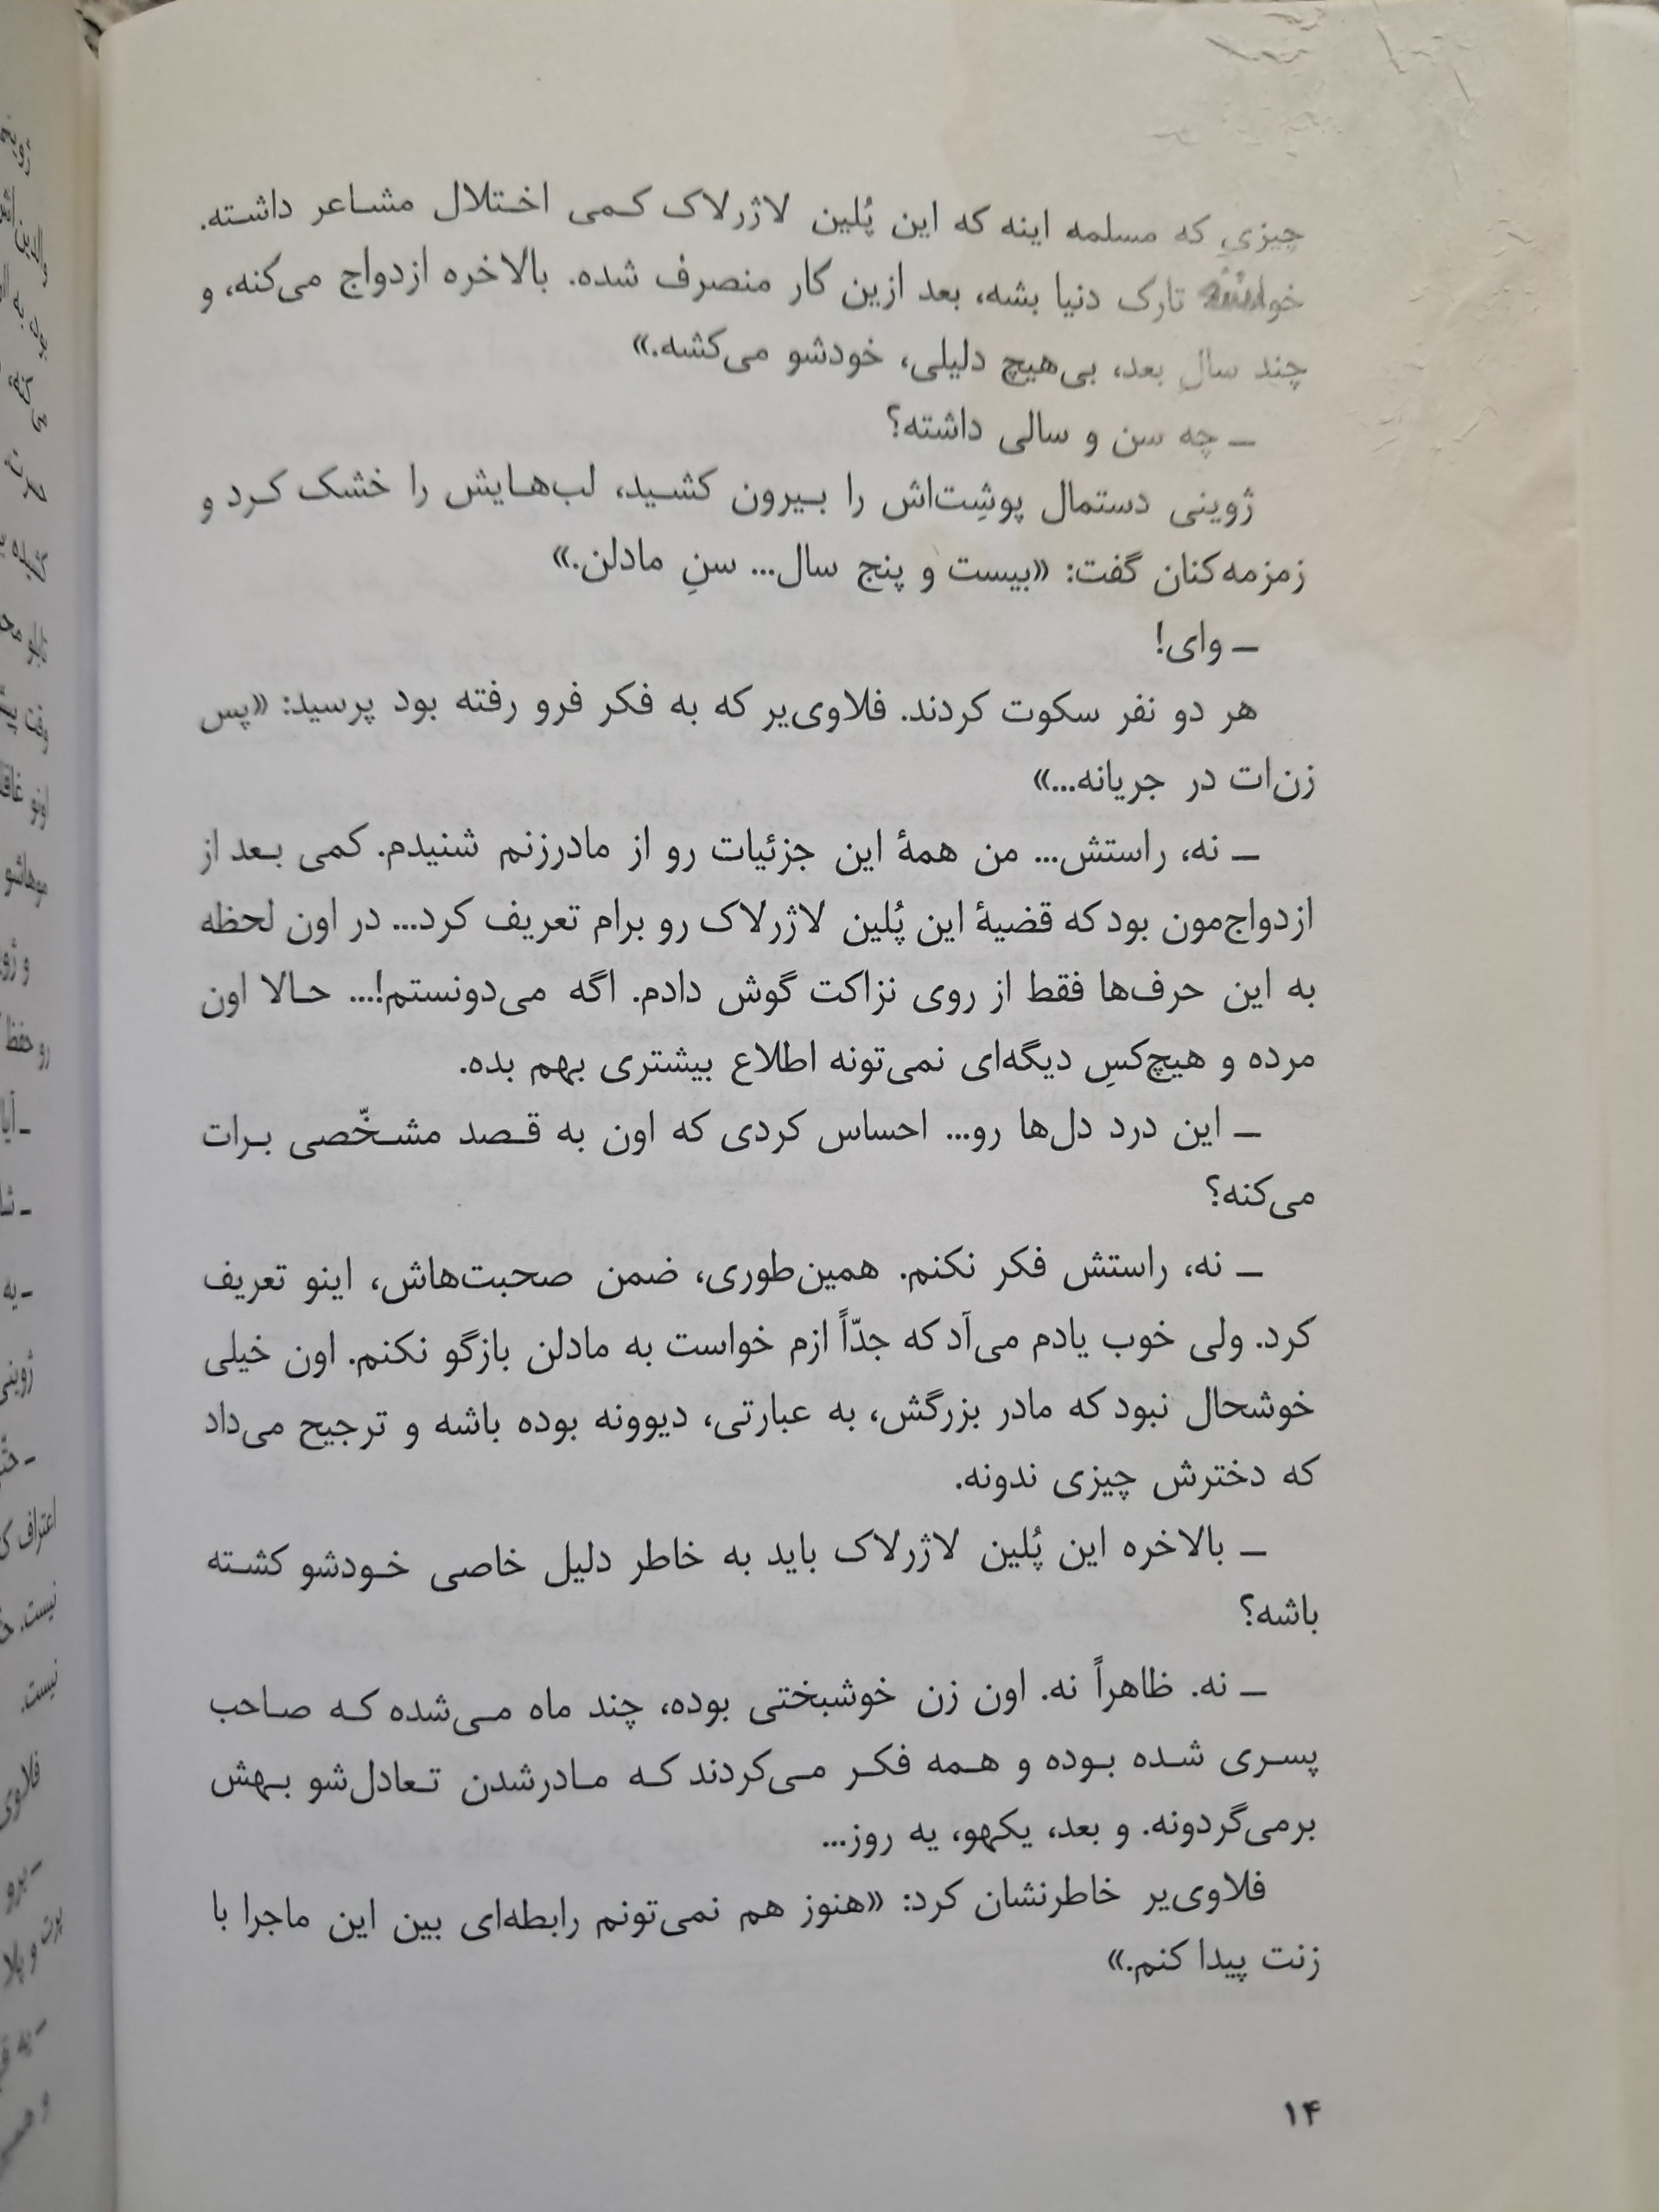 چیزی که مسلمه اینه که این پُلین لاژرلاک کمی اختلال مشاعر داشته.
خواسته تارک دنیا بشه، بعد ازین کار منصرف شده. بالاخره ازدواج می‌کنه، و
چند سال بعد، بی‌هیچ دلیلی، خودشو می‌کشه.»
ــ چه سن و سالی داشته؟
ژوینی دستمال پوشِت‌اش را بیرون کشید، لب‌هایش را خشک کرد و
زمزمه‌کنان گفت: «بیست و پنج سال... سنِ مادلن.»
ــ وای!
هر دو نفر سکوت کردند. فلاوی‌یر که به فکر فرو رفته بود پرسید: «پس
زن‌ات در جریانه...»
ــ نه، راستش... من همهٔ این جزئیات رو از مادرزنم شنیدم. کمی بعد از
ازدواج‌مون بود که قضیهٔ این پُلین لاژرلاک رو برام تعریف کرد... در اون لحظه
به این حرف‌ها فقط از روی نزاکت گوش دادم. اگه می‌دونستم!... حالا اون
مرده و هیچ‌کسِ دیگه‌ای نمی‌تونه اطلاع بیشتری بهم بده.
ــ این درد دل‌ها رو... احساس کردی که اون به قصد مشخّصی برات
می‌کنه؟
ــ نه، راستش فکر نکنم. همین‌طوری، ضمن صحبت‌هاش، اینو تعریف
کرد. ولی خوب یادم می‌آد که جدّاً ازم خواست به مادلن بازگو نکنم. اون خیلی
خوشحال نبود که مادر بزرگش، به عبارتی، دیوونه بوده باشه و ترجیح می‌داد
که دخترش چیزی ندونه.
ــ بالاخره این پُلین لاژرلاک باید به خاطر دلیل خاصی خودشو کشته
باشه؟
ــ نه. ظاهراً نه. اون زن خوشبختی بوده، چند ماه می‌شده که صاحب
پسری شده بوده و همه فکر می‌کردند که مادرشدن تعادل‌شو بهش
برمی‌گردونه. و بعد، یکهو، یه روز...
فلاوی‌یر خاطرنشان کرد: «هنوز هم نمی‌تونم رابطه‌ای بین این ماجرا با
زنت پیدا کنم.»
۱۴